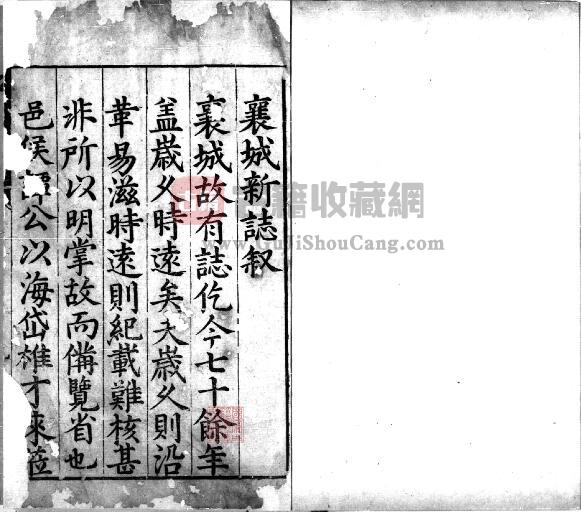 襄城新誌叙
襄城故有誌仡今七十餘年
盖歳久時遠矣夫歳久則沿
革易滋時遠則紀載難核甚
非所以明掌故而備覽省也
邑侯譚公以海岱雄才來蒞
籍收藏網
www.GuJiShouCang.com